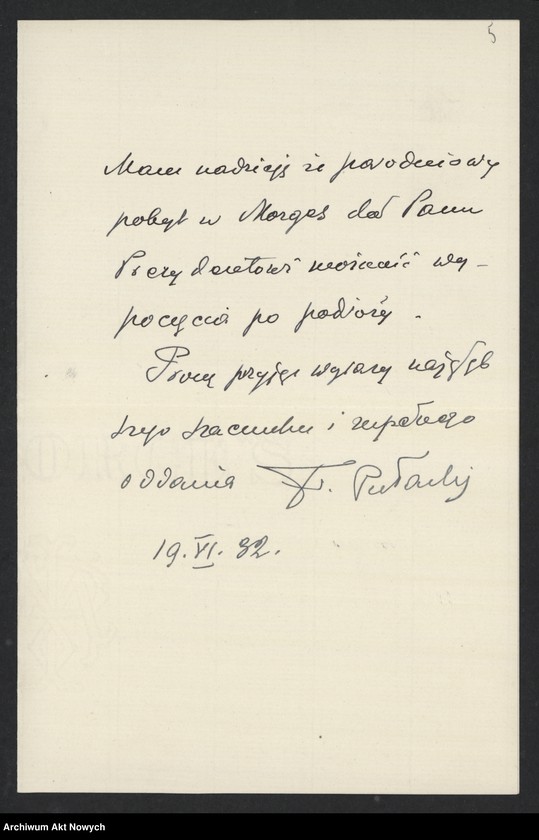 5
Mam nadzieję że parodniowy
pobyt w Morges dał Panu
Prezydentowi możność wy-
poczęcia po podróży.
Proszę przyjąć wyrazy najgłęb
szego szacunku i zupełnego
oddania Fr. Pułaski
19.VI.32.
Archiwum Akt Nowych